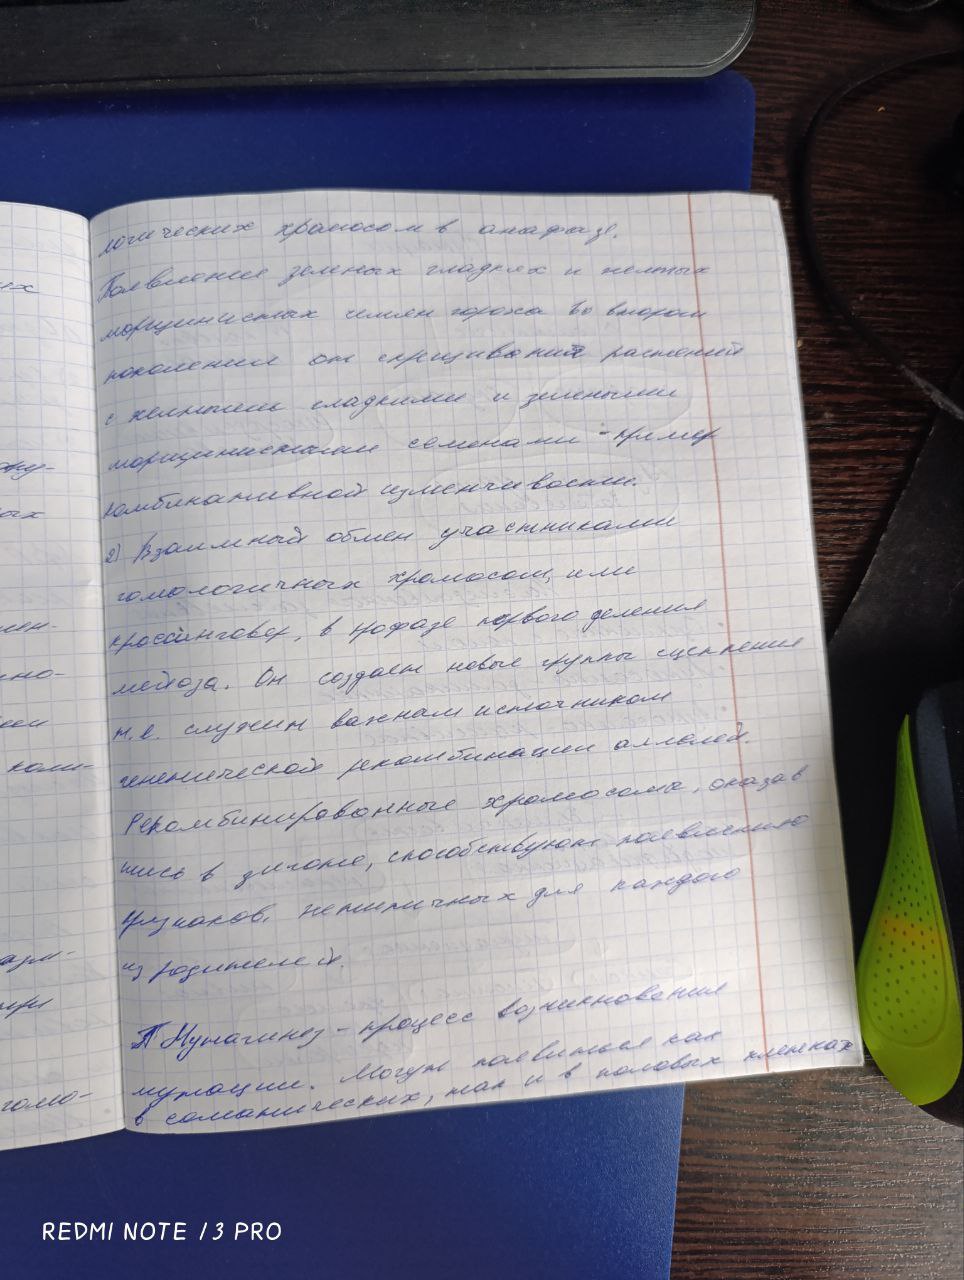 логических хромосом в анафазе.
Появление зеленых гладких и желтых
морщинистых семян гороха во втором
поколении от скрещивания растений
с желтыми гладкими и зелеными
морщинистыми семенами - пример
комбинативной изменчивости.
2) Взаимный обмен участниками
гомологичных хромосом, или
кроссинговер, в профазе первого деления
мейоза. Он создает новые группы сцепления
т.е. служит важнам источником
генетической рекомбинации аллолей.
Рекомбинированные хромосомы, оказав
шись в зиготе, способствуют появлению
признаков, нетипичных для каждого
из родителей.
Мутагинез - процесс возникнования
мутации. Могут появиться как
в соматических, так и в половых клетках
ых
ых
мен-
но-
ком-
разм-
при
гомо-
REDMI NOTE 13 PRO